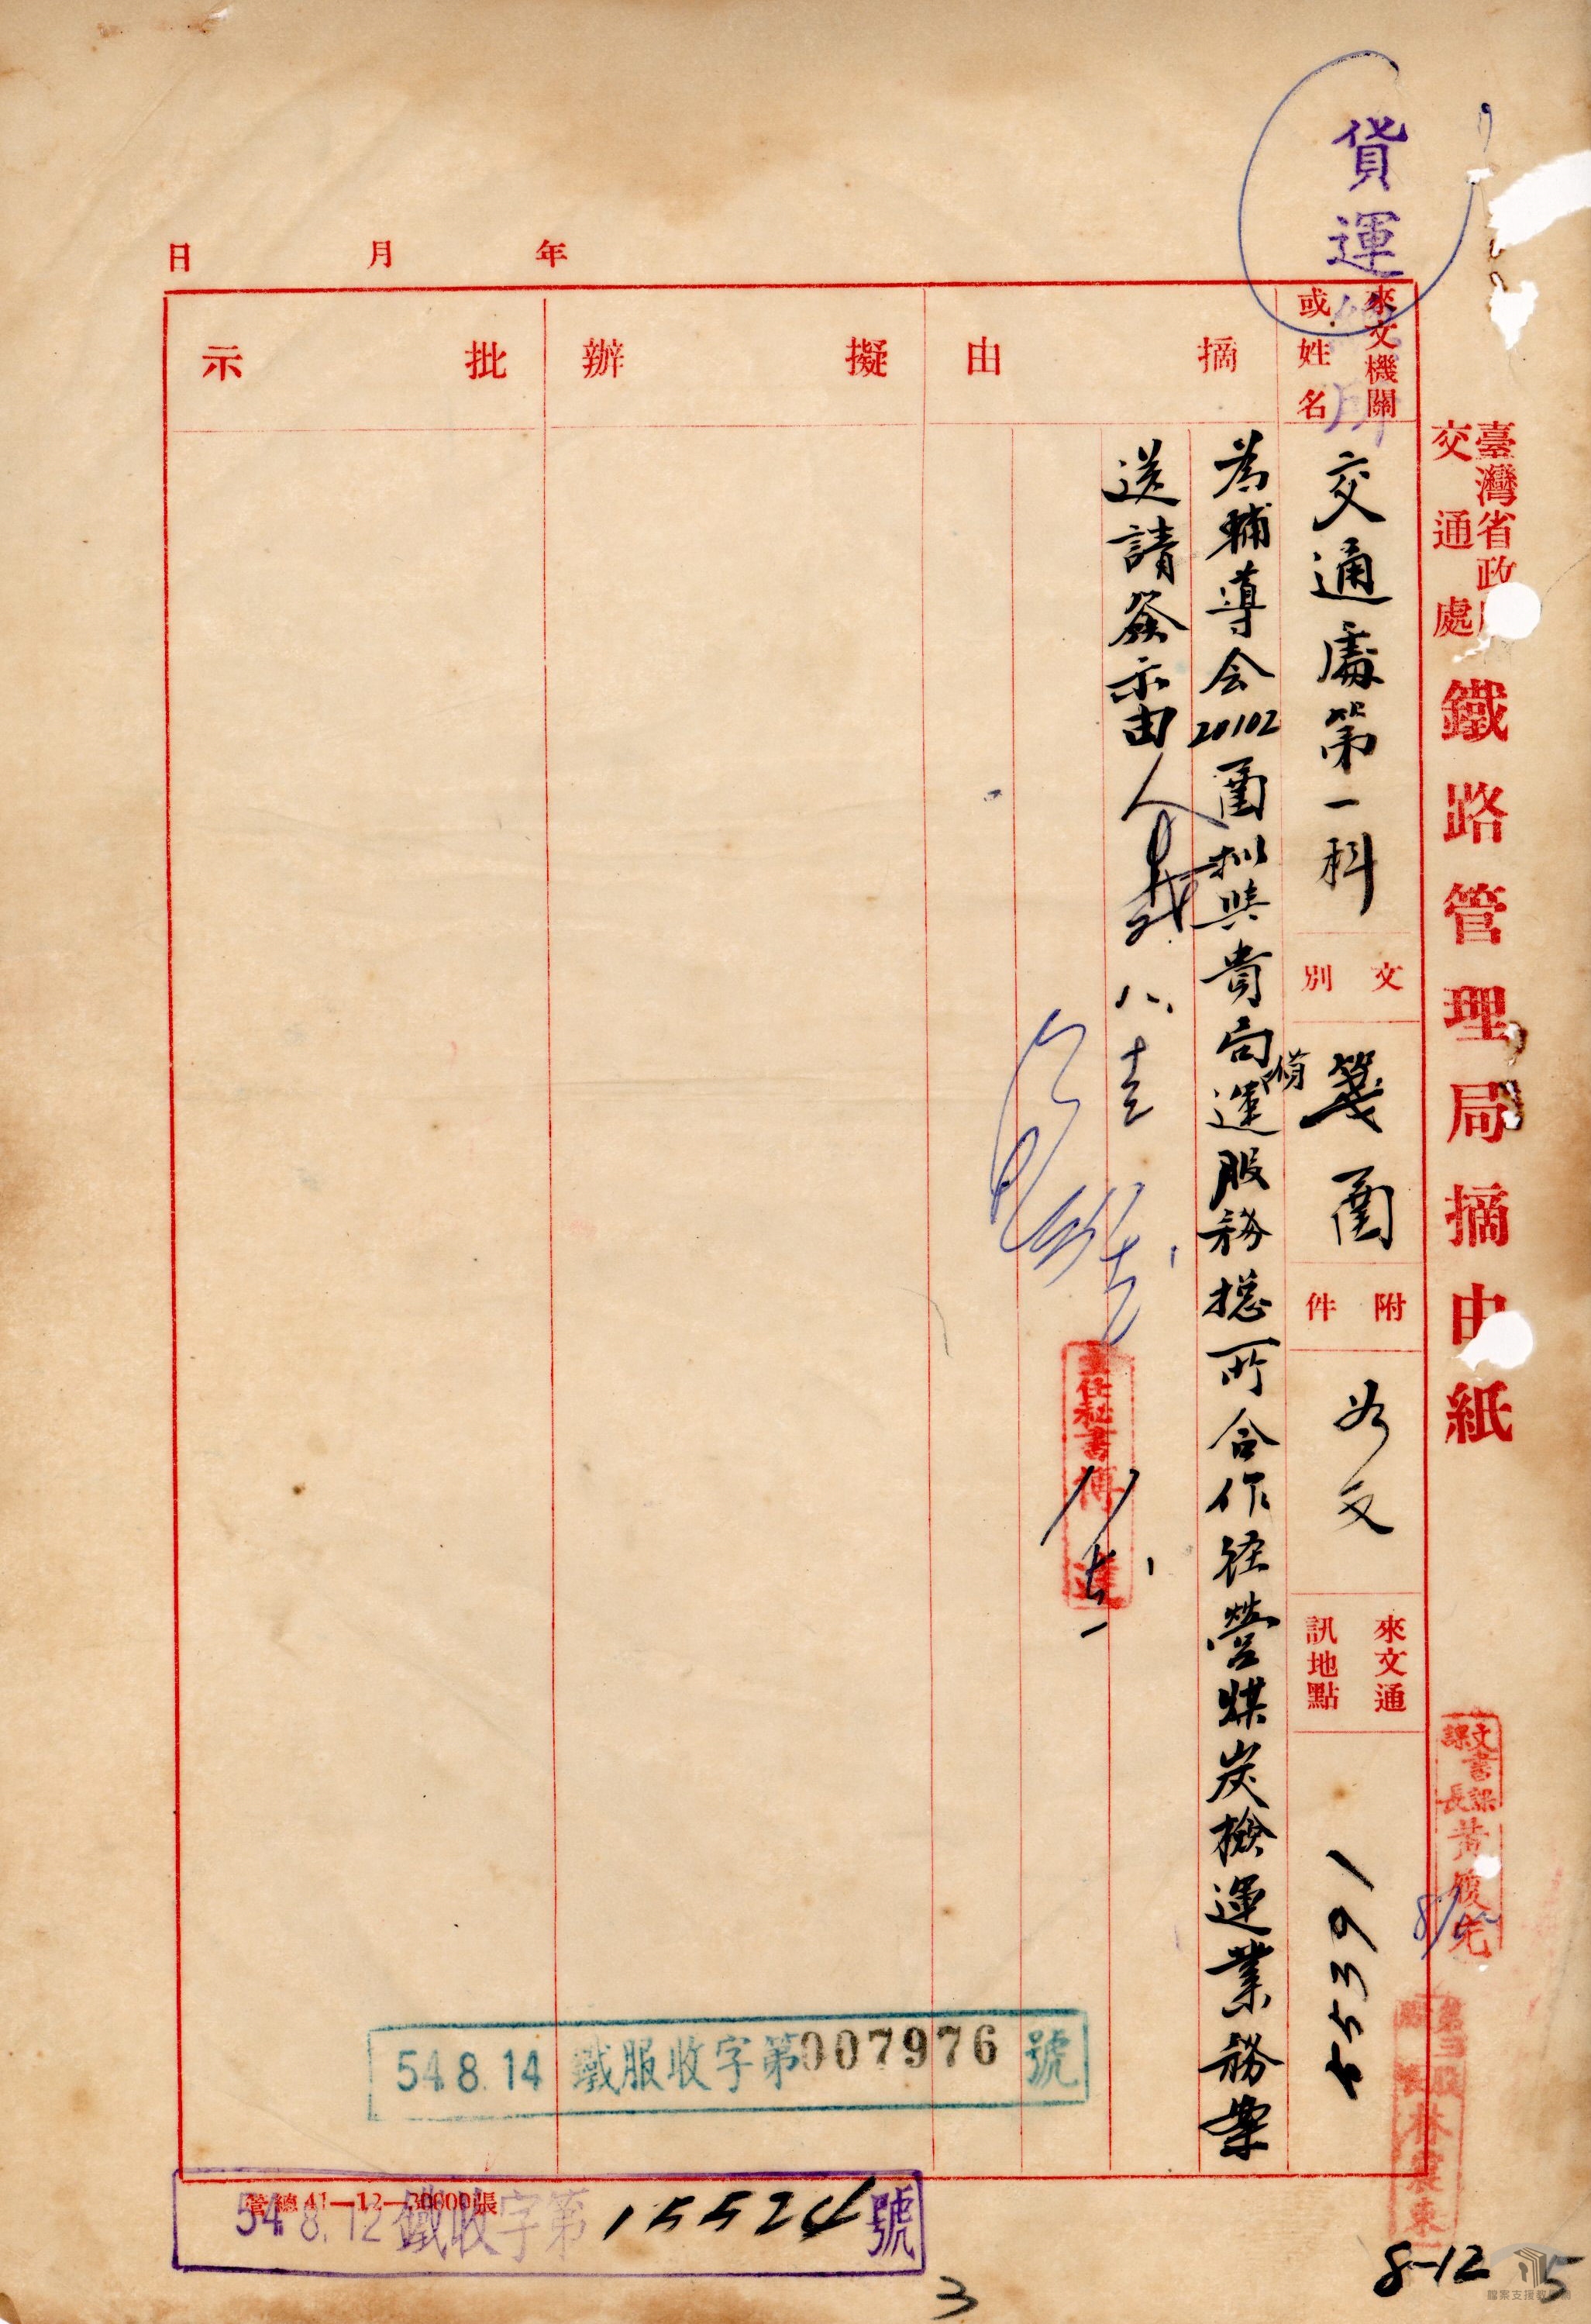 貨運
臺灣省政
交通處
鐵路管理局摘由紙
來文機關
或姓名
交通處第一科
文別
箋函
附件
如文
來文通
訊地點
55391
摘由
為輔導会20102函拟與貴局運服務總所合作经營煤炭檢運業務案
備
送請簽示由
擬辦
批示
年月日
主任秘書傅
文書課
課長黃履先
8-12
54.8.14 鐵服收字第007976號
54.8.12 鐵收字第15524號
管總41—12—30000張
3
5
檔案支援教學網